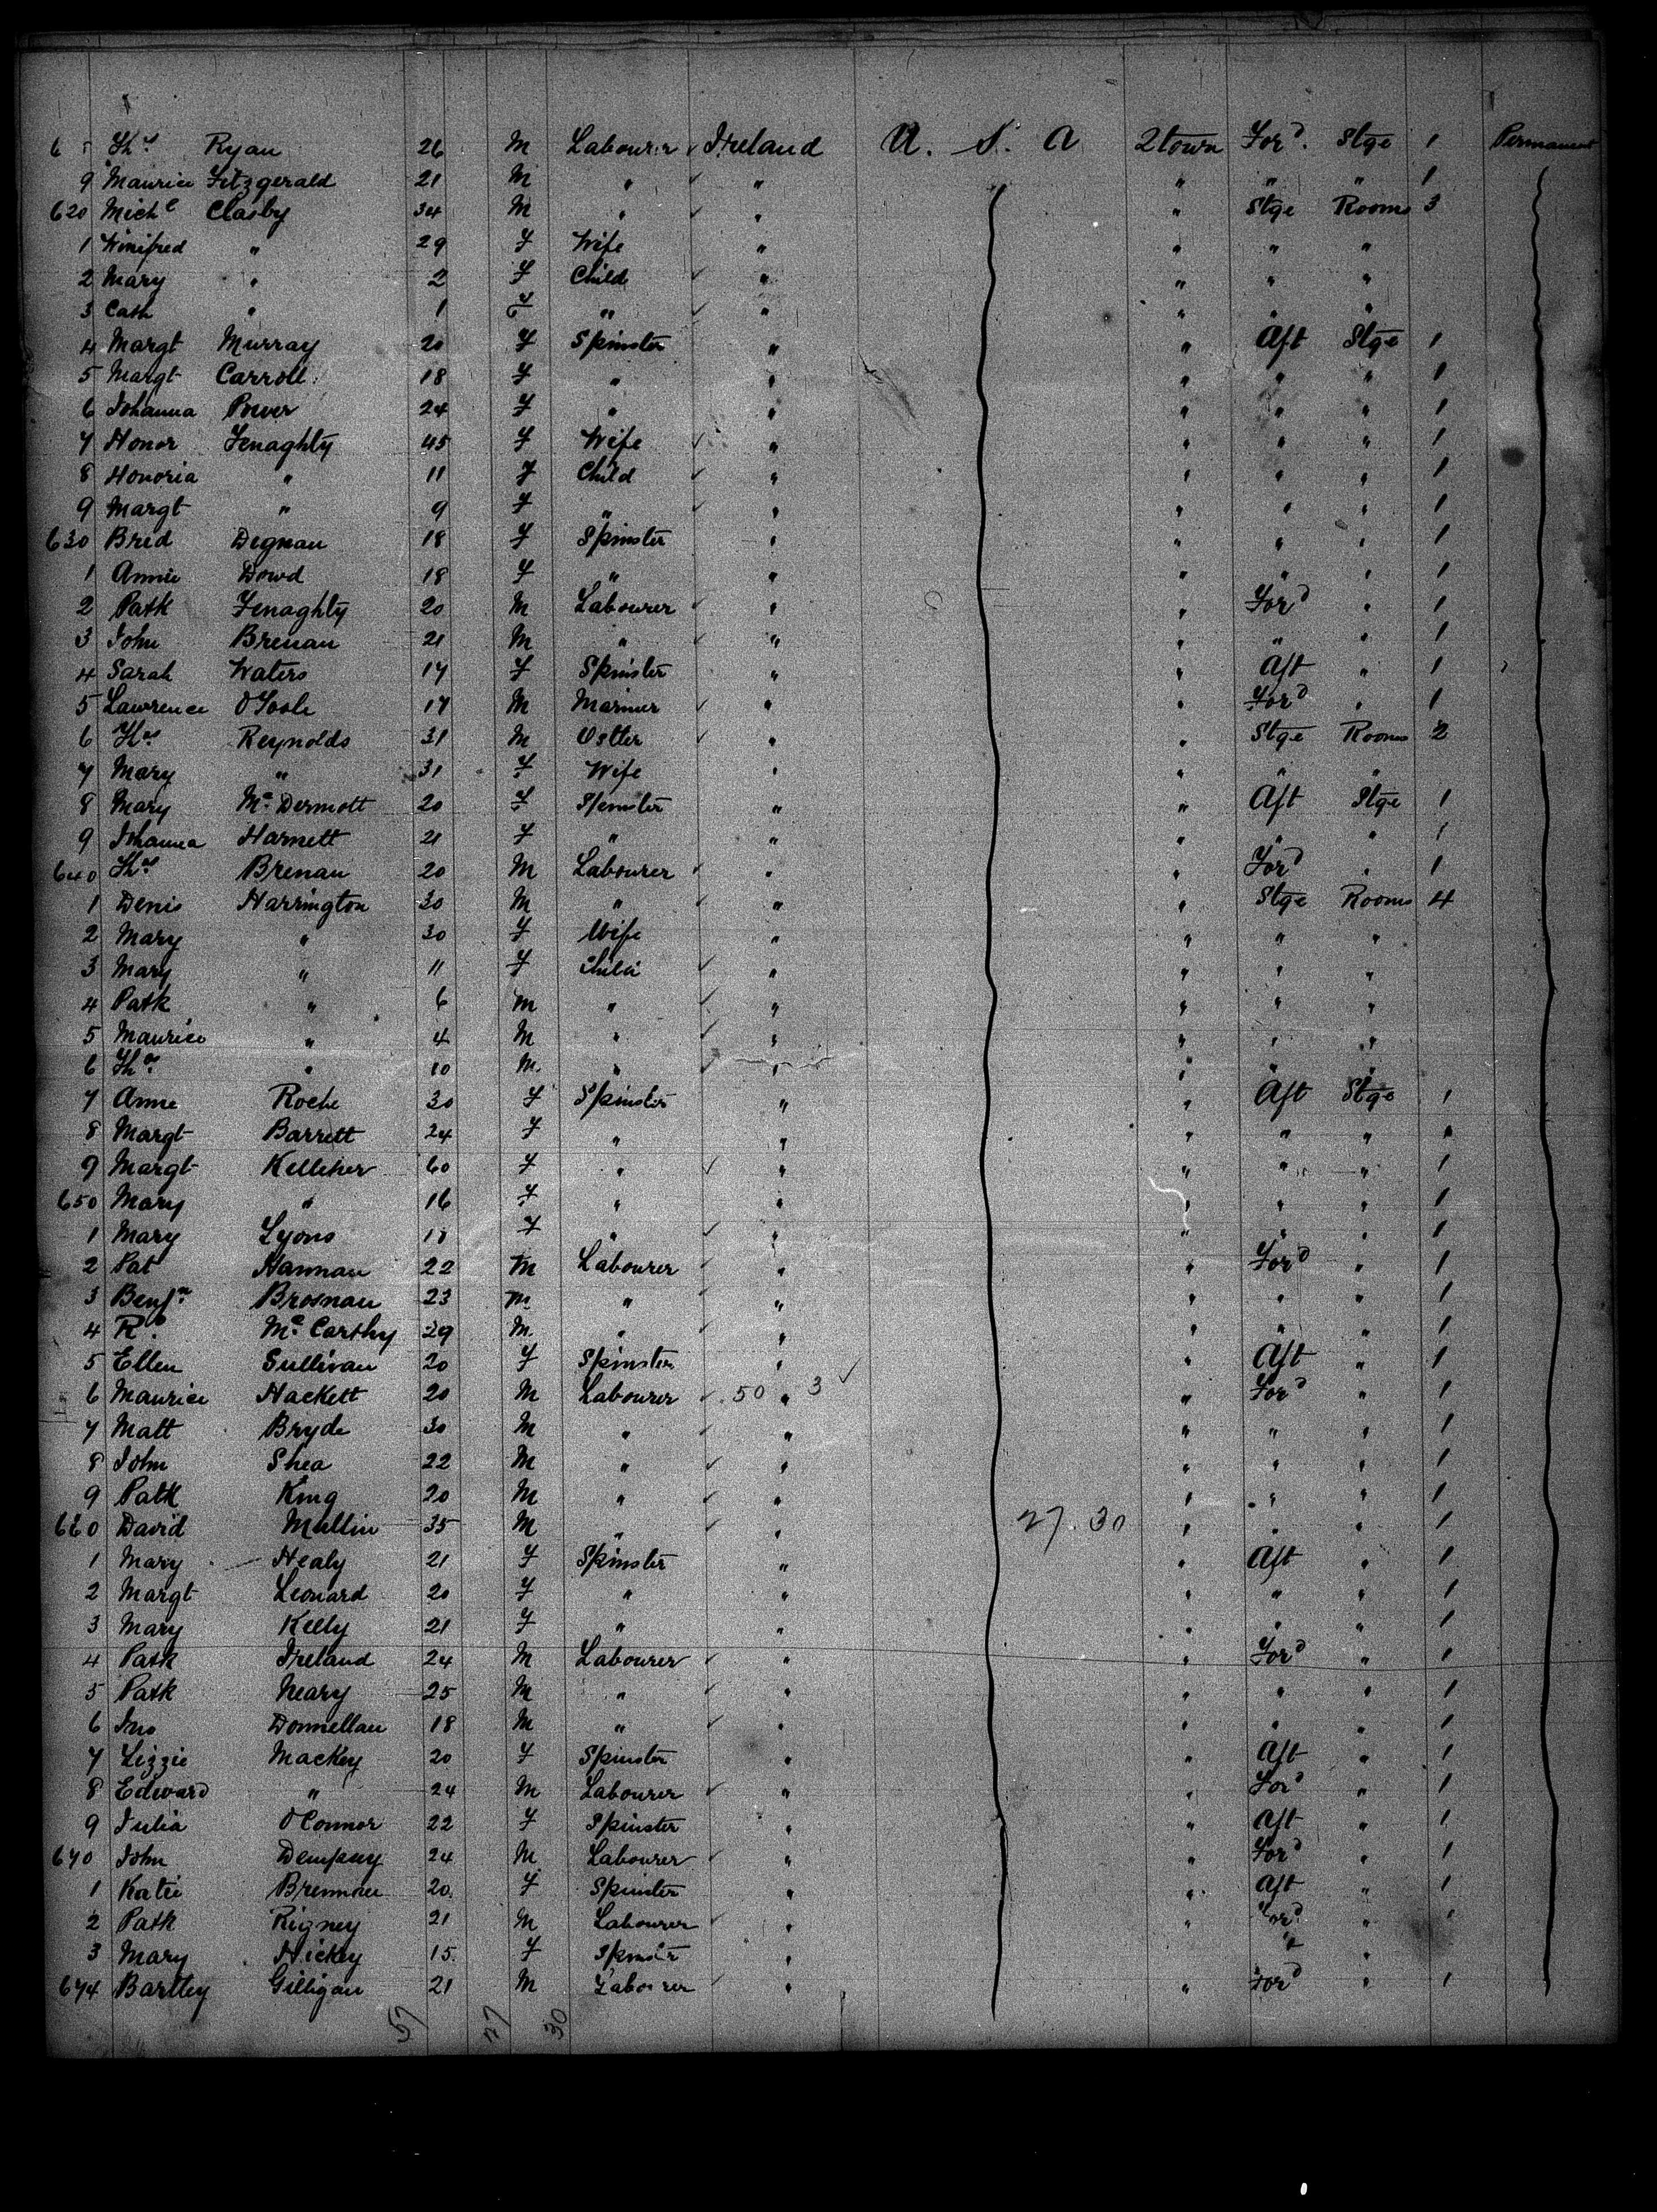 6 Thos Ryan 26 M Labourer ✓ Ireland U. S. A 2town Ford. Stge 1 Permanent
9 Maurice Fitzgerald 21 M " ✓ " " " " 1
620 Michl Clasby 34 M " ✓ " " Stge Rooms 3
1 Winifred " 29 F Wife " " " "
2 Mary " 2 F Child ✓ " " " "
3 Cath " 1 F " ✓ " " " "
4 Margt Murray 20 F Spinster " " Aft Stge 1
5 Margt Carroll 18 F " " " " " 1
6 Johanna Power 24 F " " " " " 1
7 Honor Fenaghty 45 F Wife ✓ " " " " 1
8 Honoria " 11 F Child ✓ " " " " 1
9 Margt " 9 F " ✓ " " " " 1
630 Brid Degnan 18 F Spinster " " " " 1
1 Annie Dowd 18 F " " " " " 1
2 Patk Fenaghty 20 M Labourer ✓ " " Ford " 1
3 John Brenan 21 M " ✓ " " " " 1
4 Sarah Waters 17 F Spinster " " Aft " 1
5 Lawrence O'Toole 17 M Mariner ✓ " " Ford " 1
6 Thos Reynolds 31 M Ostler ✓ " " Stge Rooms 2
7 Mary " 31 F Wife " " " "
8 Mary Mc Dermott 20 F Spinster " " Aft Stge 1
9 Johanna Harnett 21 F " " " " " 1
640 Thos Brenan 20 M Labourer ✓ " " Ford " 1
1 Denis Harrington 30 M " ✓ " " Stge Rooms 4
2 Mary " 30 F Wife " " " "
3 Mary " 11 F Child ✓ " " " "
4 Patk " 6 M " ✓ " " " "
5 Maurice " 4 M " ✓ " " " "
6 Thos " 10 M. " ✓ " " " "
7 Anne Roche 30 F Spinster " " Aft Stge 1
8 Margt Barrett 24 F " " " " " 1
9 Margt Kelliher 60 F " ✓ " " " " 1
650 Mary " 16 F " " " " " 1
1 Mary Lyons 18 F " ✓ " " " " 1
2 Pat Hannan 22 M Labourer ✓ " " Ford " 1
3 Benjn Brosnan 23 M " ✓ " " " " 1
4 Rd Mc Carthy 29 M. " ✓ " " " " 1
5 Ellen Sullivan 20 F Spinster " " Aft " 1
6 Maurice Hackett 20 M Labourer ✓ 50 " 3 ✓ " Ford " 1
7 Matt Bryde 30 M " ✓ " " " " 1
8 John Shea 22 M " ✓ " " " " 1
9 Patk King 20 M " ✓ " " " " 1
660 David Mullin 35 M " ✓ " 27. 30 " " " 1
1 Mary Healy 21 F Spinster " " Aft " 1
2 Margt Leonard 20 F " " " " " 1
3 Mary Kelly 21 F " " " " " 1
4 Patk Ireland 24 M Labourer ✓ " " Ford " 1
5 Patk Neary 25 M " ✓ " " " " 1
6 Jno Donnellan 18 M " ✓ " " " " 1
7 Lizzie Mackey 20 F Spinster " " Aft " 1
8 Edward " 24 M Labourer ✓ " " Ford " 1
9 Julia O'Connor 22 F Spinster " " Aft " 1
670 John Dempsey 24 M Labourer ✓ " " Ford " 1
1 Katie Brennan 20. F Spinster " " Aft " 1
2 Patk Rigney 21 M Labourer ✓ " " Ford " 1
3 Mary Hickey 15. F Spinster " "
674 Bartley Gilligan 21 M Labourer ✓ " " Ford " 1
57 27 30